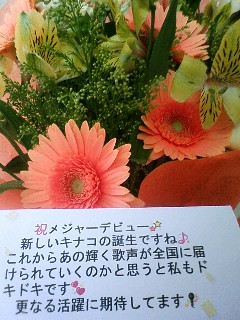 祝メジャーデビュー
新しいキナコの誕生ですね
これからあの輝く歌声が全国に届
けられていくのかと思うと私もド
キドキです
更なる活躍に期待してます